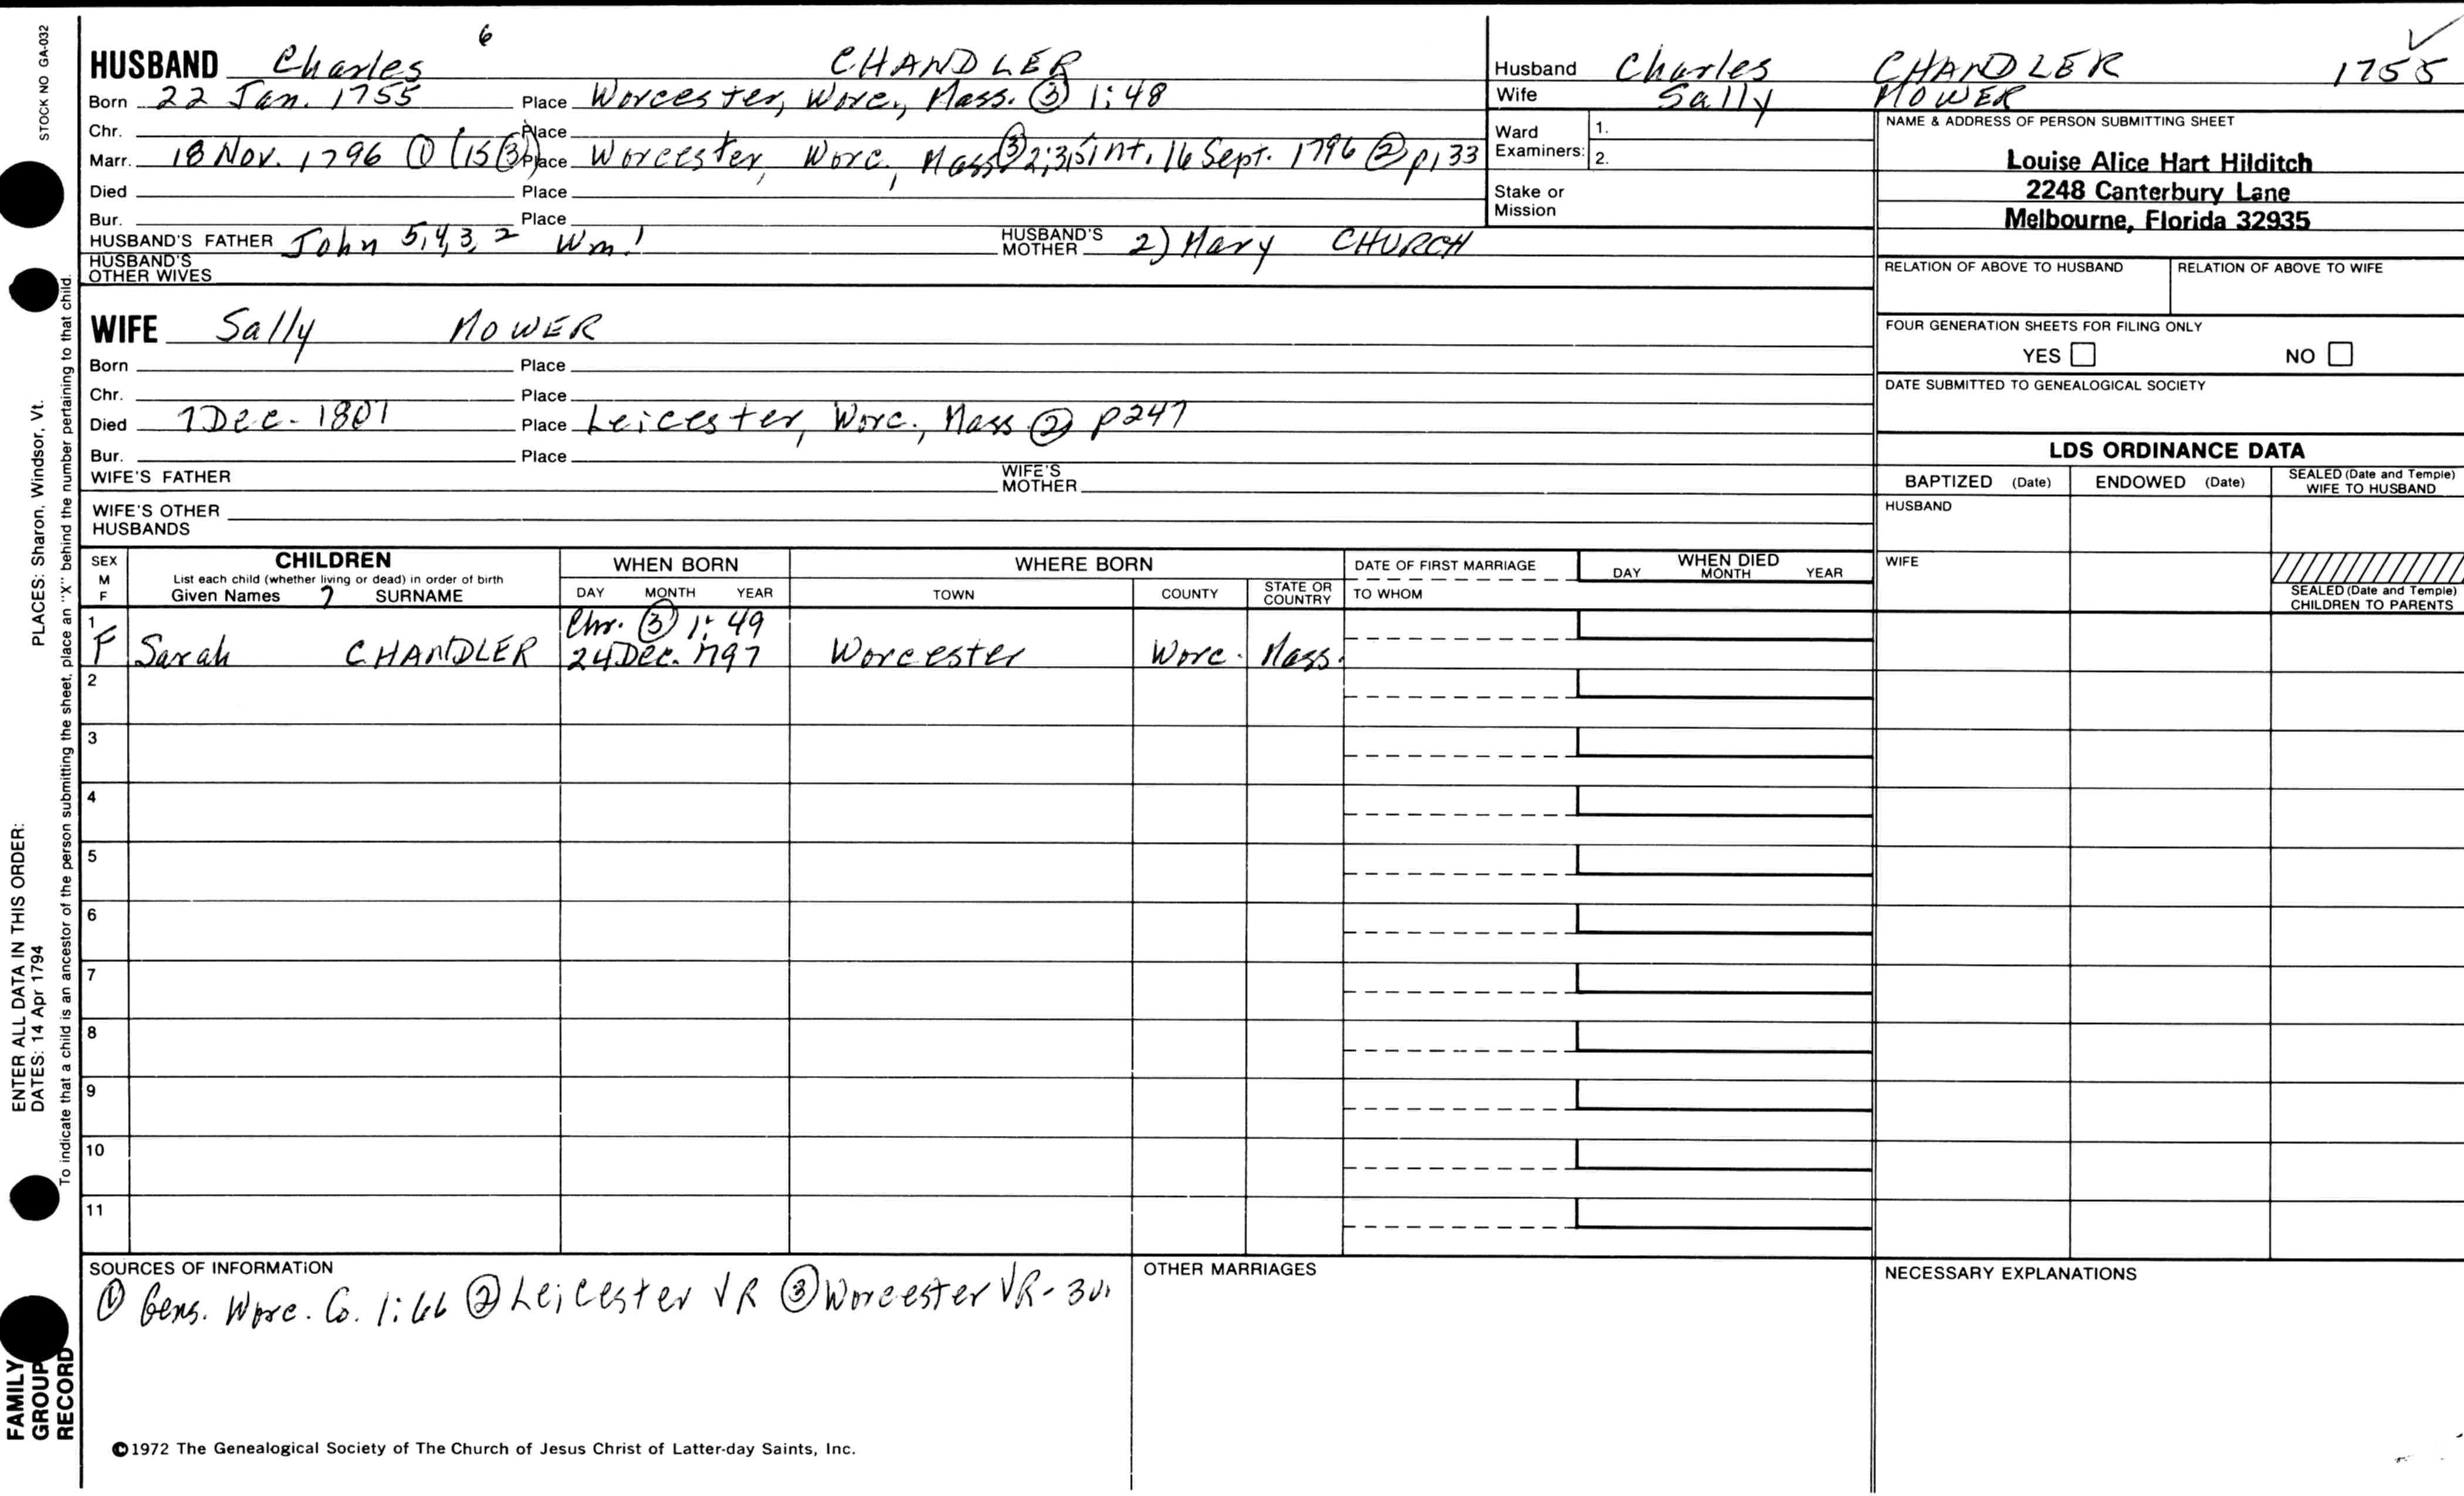 STOCK NO GA-032
PLACES: Sharon, Windsor, Vt.
ENTER ALL DATA IN THIS ORDER:
DATES: 14 Apr 1794
To indicate that a child is an ancestor of the person submitting the sheet, place an "X" behind the number pertaining to that child.
FAMILY GROUP RECORD
6
HUSBAND Charles CHANDLER
Born 22 Jan. 1755 Place Worcester, Worc., Mass. ③ 1:48
Chr. Place
Marr. 18 Nov. 1796 ① (15 ③) Place Worcester, Worc., Mass ③ 2:315 int. 16 Sept. 1796 ② p133
Died Place
Bur. Place
HUSBAND'S FATHER John 5,4,3,2 Wm. 1 HUSBAND'S MOTHER 2) Mary CHURCH
HUSBAND'S OTHER WIVES
WIFE Sally MOWER
Born Place
Chr. Place
Died 7 Dec. 1801 Place Leicester, Worc., Mass ② p247
Bur. Place
WIFE'S FATHER WIFE'S MOTHER
WIFE'S OTHER HUSBANDS
Husband Charles CHANDLER 1755
Wife Sally MOWER
Ward Examiners: 1.
2.
Stake or Mission
NAME & ADDRESS OF PERSON SUBMITTING SHEET
Louise Alice Hart Hilditch
2248 Canterbury Lane
Melbourne, Florida 32935
RELATION OF ABOVE TO HUSBAND RELATION OF ABOVE TO WIFE
FOUR GENERATION SHEETS FOR FILING ONLY
YES NO
DATE SUBMITTED TO GENEALOGICAL SOCIETY
LDS ORDINANCE DATA
BAPTIZED (Date) ENDOWED (Date) SEALED (Date and Temple) WIFE TO HUSBAND
HUSBAND
WIFE
SEALED (Date and Temple) CHILDREN TO PARENTS
SEX M F CHILDREN WHEN BORN WHERE BORN DATE OF FIRST MARRIAGE WHEN DIED
List each child (whether living or dead) in order of birth
Given Names 7 SURNAME DAY MONTH YEAR TOWN COUNTY STATE OR COUNTRY TO WHOM DAY MONTH YEAR
1 Chr. ③ 1:49
F Sarah CHANDLER 24 Dec. 1797 Worcester Worc. Mass.
2
3
4
5
6
7
8
9
10
11
SOURCES OF INFORMATION
① Gens. Worc. Co. 1:66 ② Leicester VR ③ Worcester VR-3v.
OTHER MARRIAGES
NECESSARY EXPLANATIONS
©1972 The Genealogical Society of The Church of Jesus Christ of Latter-day Saints, Inc.